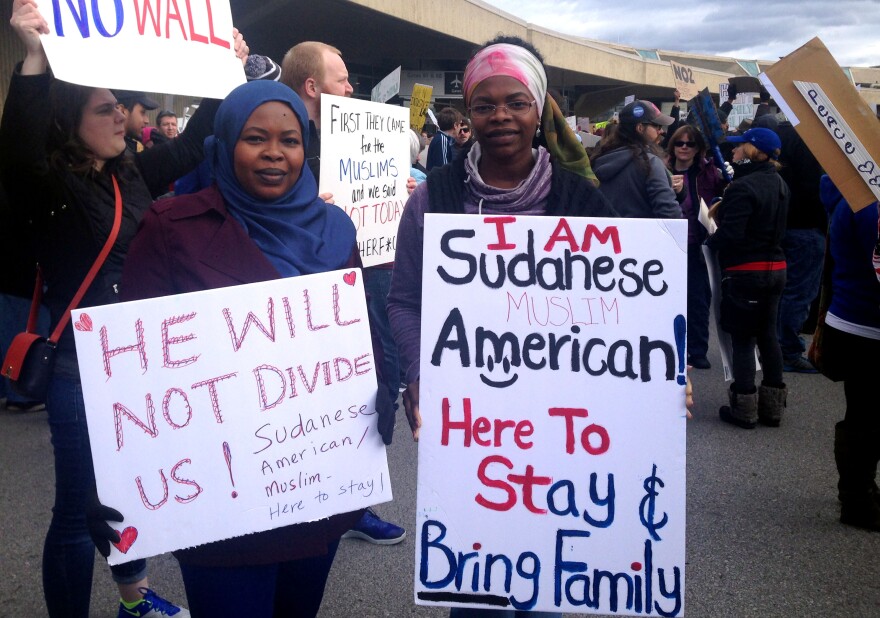 NO WALL
FIRST THEY CAME
for the
MUSLIMS
and we said
NOT TODAY
HE WILL
NOT DIVIDE
US!
Sudanese
American/
Muslim -
Here to stay!
I AM
Sudanese
MUSLIM
American!
Here To
Stay &
Bring Family
NO2